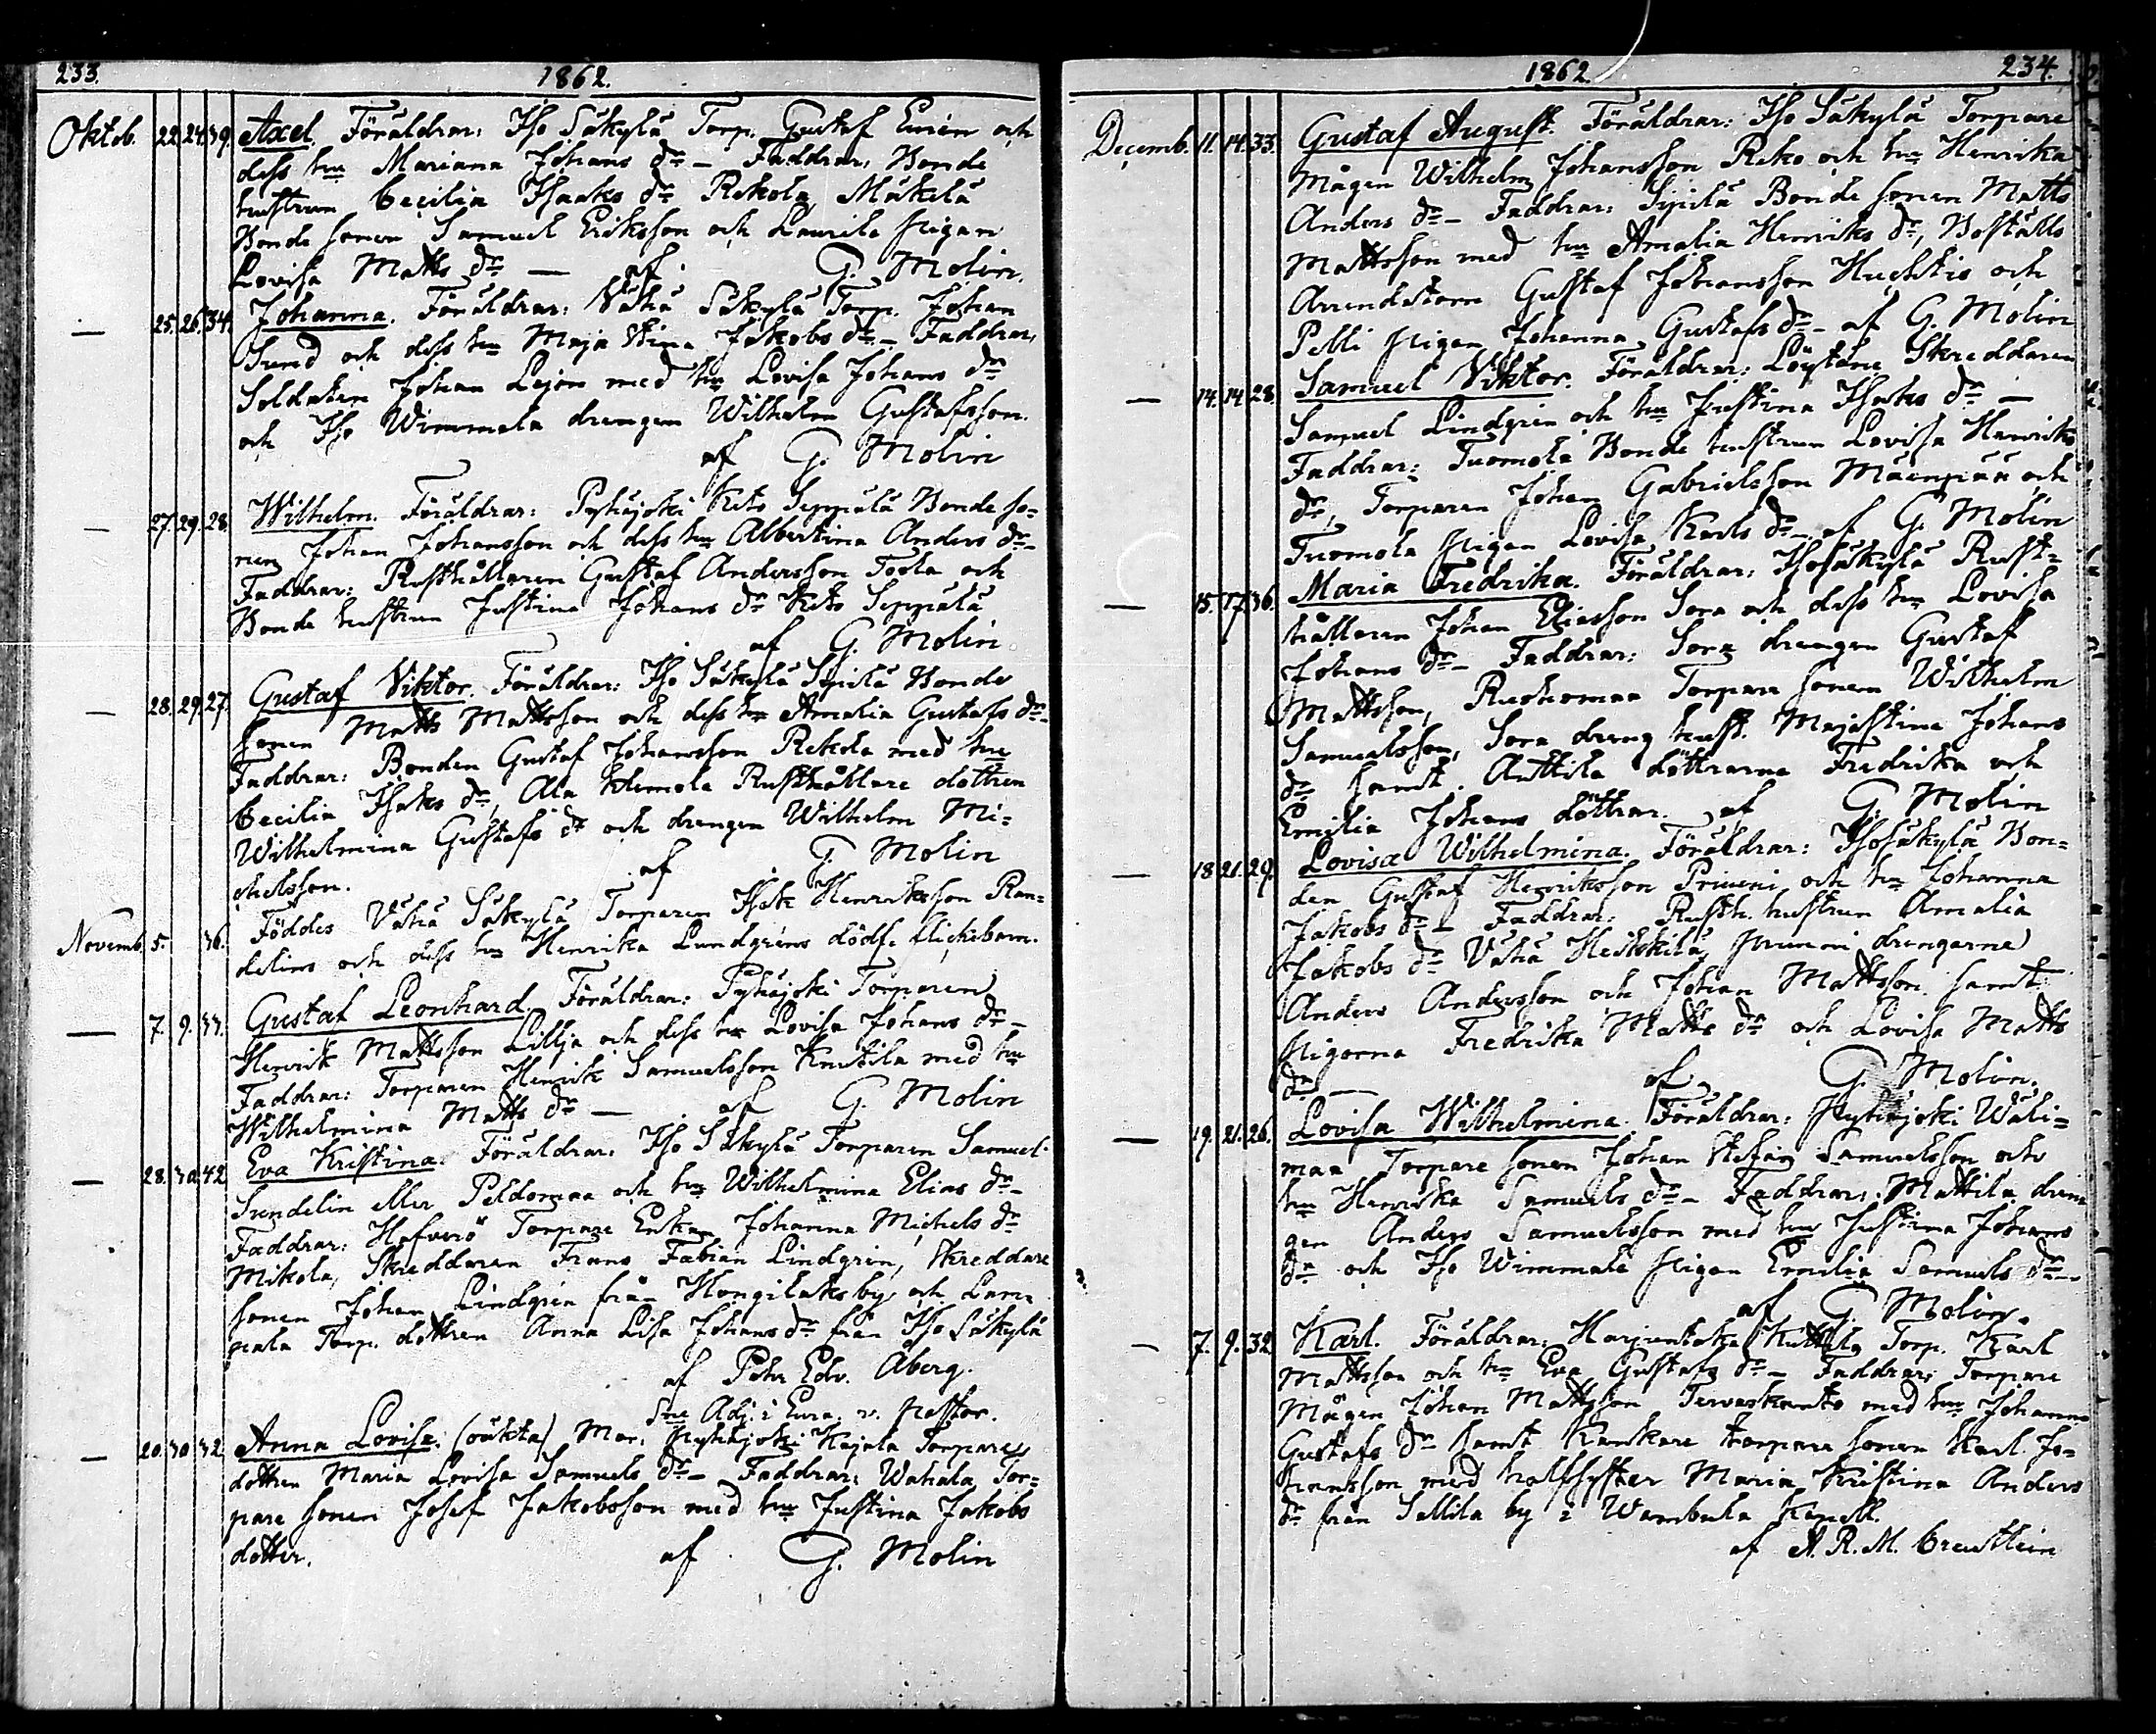 233. 1862.
Oktob. 22. 24. 39. Axel. Föräldrar: Iso Säkylä Torp. Gustaf Emién och
dess hu Mariana Johans dr – Faddrar: Bonde
hustrun Cecilia Isaaks dr Rekola, Mäkelä
Bonde sonen Samuel Eriksson och Laurila pigan
Lovisa Matts dr — af G. Molin.
— 25. 26. 34. Johanna. Föräldrar: Vähä Säkylä Torp. Johan
Sund och dess hu Maja Stina Jakobs dr – Faddrar:
Soldaten Johan Lejon med hu Lovisa Johans dr
och Iso Wimmala drengen Wilhelm Gustafsson.
af G. Molin
— 27. 29. 28. Wilhelm. Föräldrar: Pyhäjoki Kito Seppälä Bonde so-
nen Johan Johansson och dess hu Albertina Anders dr –
Faddrar: Rusthållaren Gustaf Andersson Toola och
Bonde hustrun Justina Johans dr Kito Seppälä
af G. Molin
— 28. 29. 27. Gustaf Viktor. Föräldrar: Iso Säkylä Sipilä Bonde
sonen Matts Mattsson och dess hu Amalia Gustafs dr –
Faddrar: Bonden Gustaf Johansson Rekola med hu
Cecilia Isaks dr, Ala Klemola Rusthållare dottren
Wilhelmina Gustafs dr och drengen Wilhelm Mi-
chelsson. af G. Molin
Novemb. 5. 36. Föddes Vähä Säkylä Torparen Isak Henriksson Ran-
delins och dess hu Henrika Lundgréns dödf. flickebarn.
— 7. 9. 33. Gustaf Leonhard. Föräldrar: Pyhäjoki Torparen
Henrik Mattsson Lillja och dess hu Lovisa Johans dr –
Faddrar: Torparen Henrik Samuelsson Knutila med hu
Wilhelmina Matts dr — af G. Molin
— 28. 30. 42. Eva Kristina. Föräldrar: Iso Säkylä Torparen Samuel
Sundelin eller Peldomaa och hu Wilhelmina Elias dr –
Faddrar: Hafverö Torpare Enkan Johanna Michels dr
Mikola, Skreddaren Frans Fabian Lindgrén, Skreddare
sonen Johan Lindgrén från Hongilaks by och Lam-
pala Torp. dottren Anna Lisa Johans dr från Iso Säkylä
af Petr Edv. Åberg.
Sne Adj. i Eura, v. Pastor.
— 20. 30. 32. Anna Lovisa. (oäkta) Mor: Pyhäjoki Kajala Torpare
dottren Maria Lovisa Samuels dr – Faddrar: Wahala Tor-
pare sonen Josef Jakobsson med hu Justina Jakobs
dotter. af G. Molin
1862. 234.
Decemb. 11. 14. 33. Gustaf August. Föräldrar: Iso Säkylä Torpare
mågen Wilhelm Johansson Reko och hu Henrika
Anders dr – Faddrar: Sipilä Bonde sonen Matts
Mattsson med hu Amalia Henriks dr, Boställs
Arrendatorn Gustaf Johansson Huchtis och
Pelli pigan Johanna Gustafs dr – af G. Molin
— 14. 14. 28. Samuel Viktor. Föräldrar: Löytäne Skreddaren
Samuel Lindgrén och hu Justina Isaks dr —
Faddrar: Tuomola Bonde hustrun Lovisa Henriks
dr, Torparen Johan Gabrielsson Mäenpää och
Tuomola pigan Lovisa Karls dr – af G. Molin
— 15. 17. 36. Maria Fredrika. Föräldrar: Isosäkylä Rust-
hållaren Johan Eliasson Sora och dess hu Lovisa
Johans dr – Faddrar: Sora drengen Gustaf
Mattsson, Ruohomaa Torpare sonen Wilhelm
Samuelsson, Sora dreng hust. Majastina Johans
dr samt Anttila döttrarna Fredrika och
Emilia Johans döttrar. af G. Molin
— 18. 21. 29. Lovisa Wilhelmina. Föräldrar: Isosäkylä Bon-
den Gustaf Henriksson Priuuni och hu Johanna
Jakobs dr – Faddrar: Rusth. hustrun Amalia
Jakobs dr Vähä Heikkilä, Pruuni drengarne
Anders Andersson och Johan Mattsson samt
pigorna Fredrika Matts dr och Lovisa Matts
dr — af G. Molin.
— 19. 21. 26. Lovisa Wilhelmina. Föräldrar: Pyhäjoki Wäli-
maa Torpare sonen Johan Stefan Samuelsson och
hu Henrika Samuels dr – Faddrar: Mattila dren-
gen Anders Samuelsson med hu Justina Johans
dr och Iso Wimmala pigan Emilia Samuels dr –
af G. Molin.
— 7. 9. 32. Karl. Föräldrar: Harjunkoka Kuttila Torp. Karl
Mattsson och hu Eva Gustafs dr – Faddrar: Torpare
Mågen Johan Mattsson Tervaskanto med hu Johanna
Gustafs dr samt Kankare torpare sonen Karl Jo-
hansson med halfsyster Maria Kristina Anders
dr från Sallila by i Wambula Kapell.
af A. R. M. Creutlein